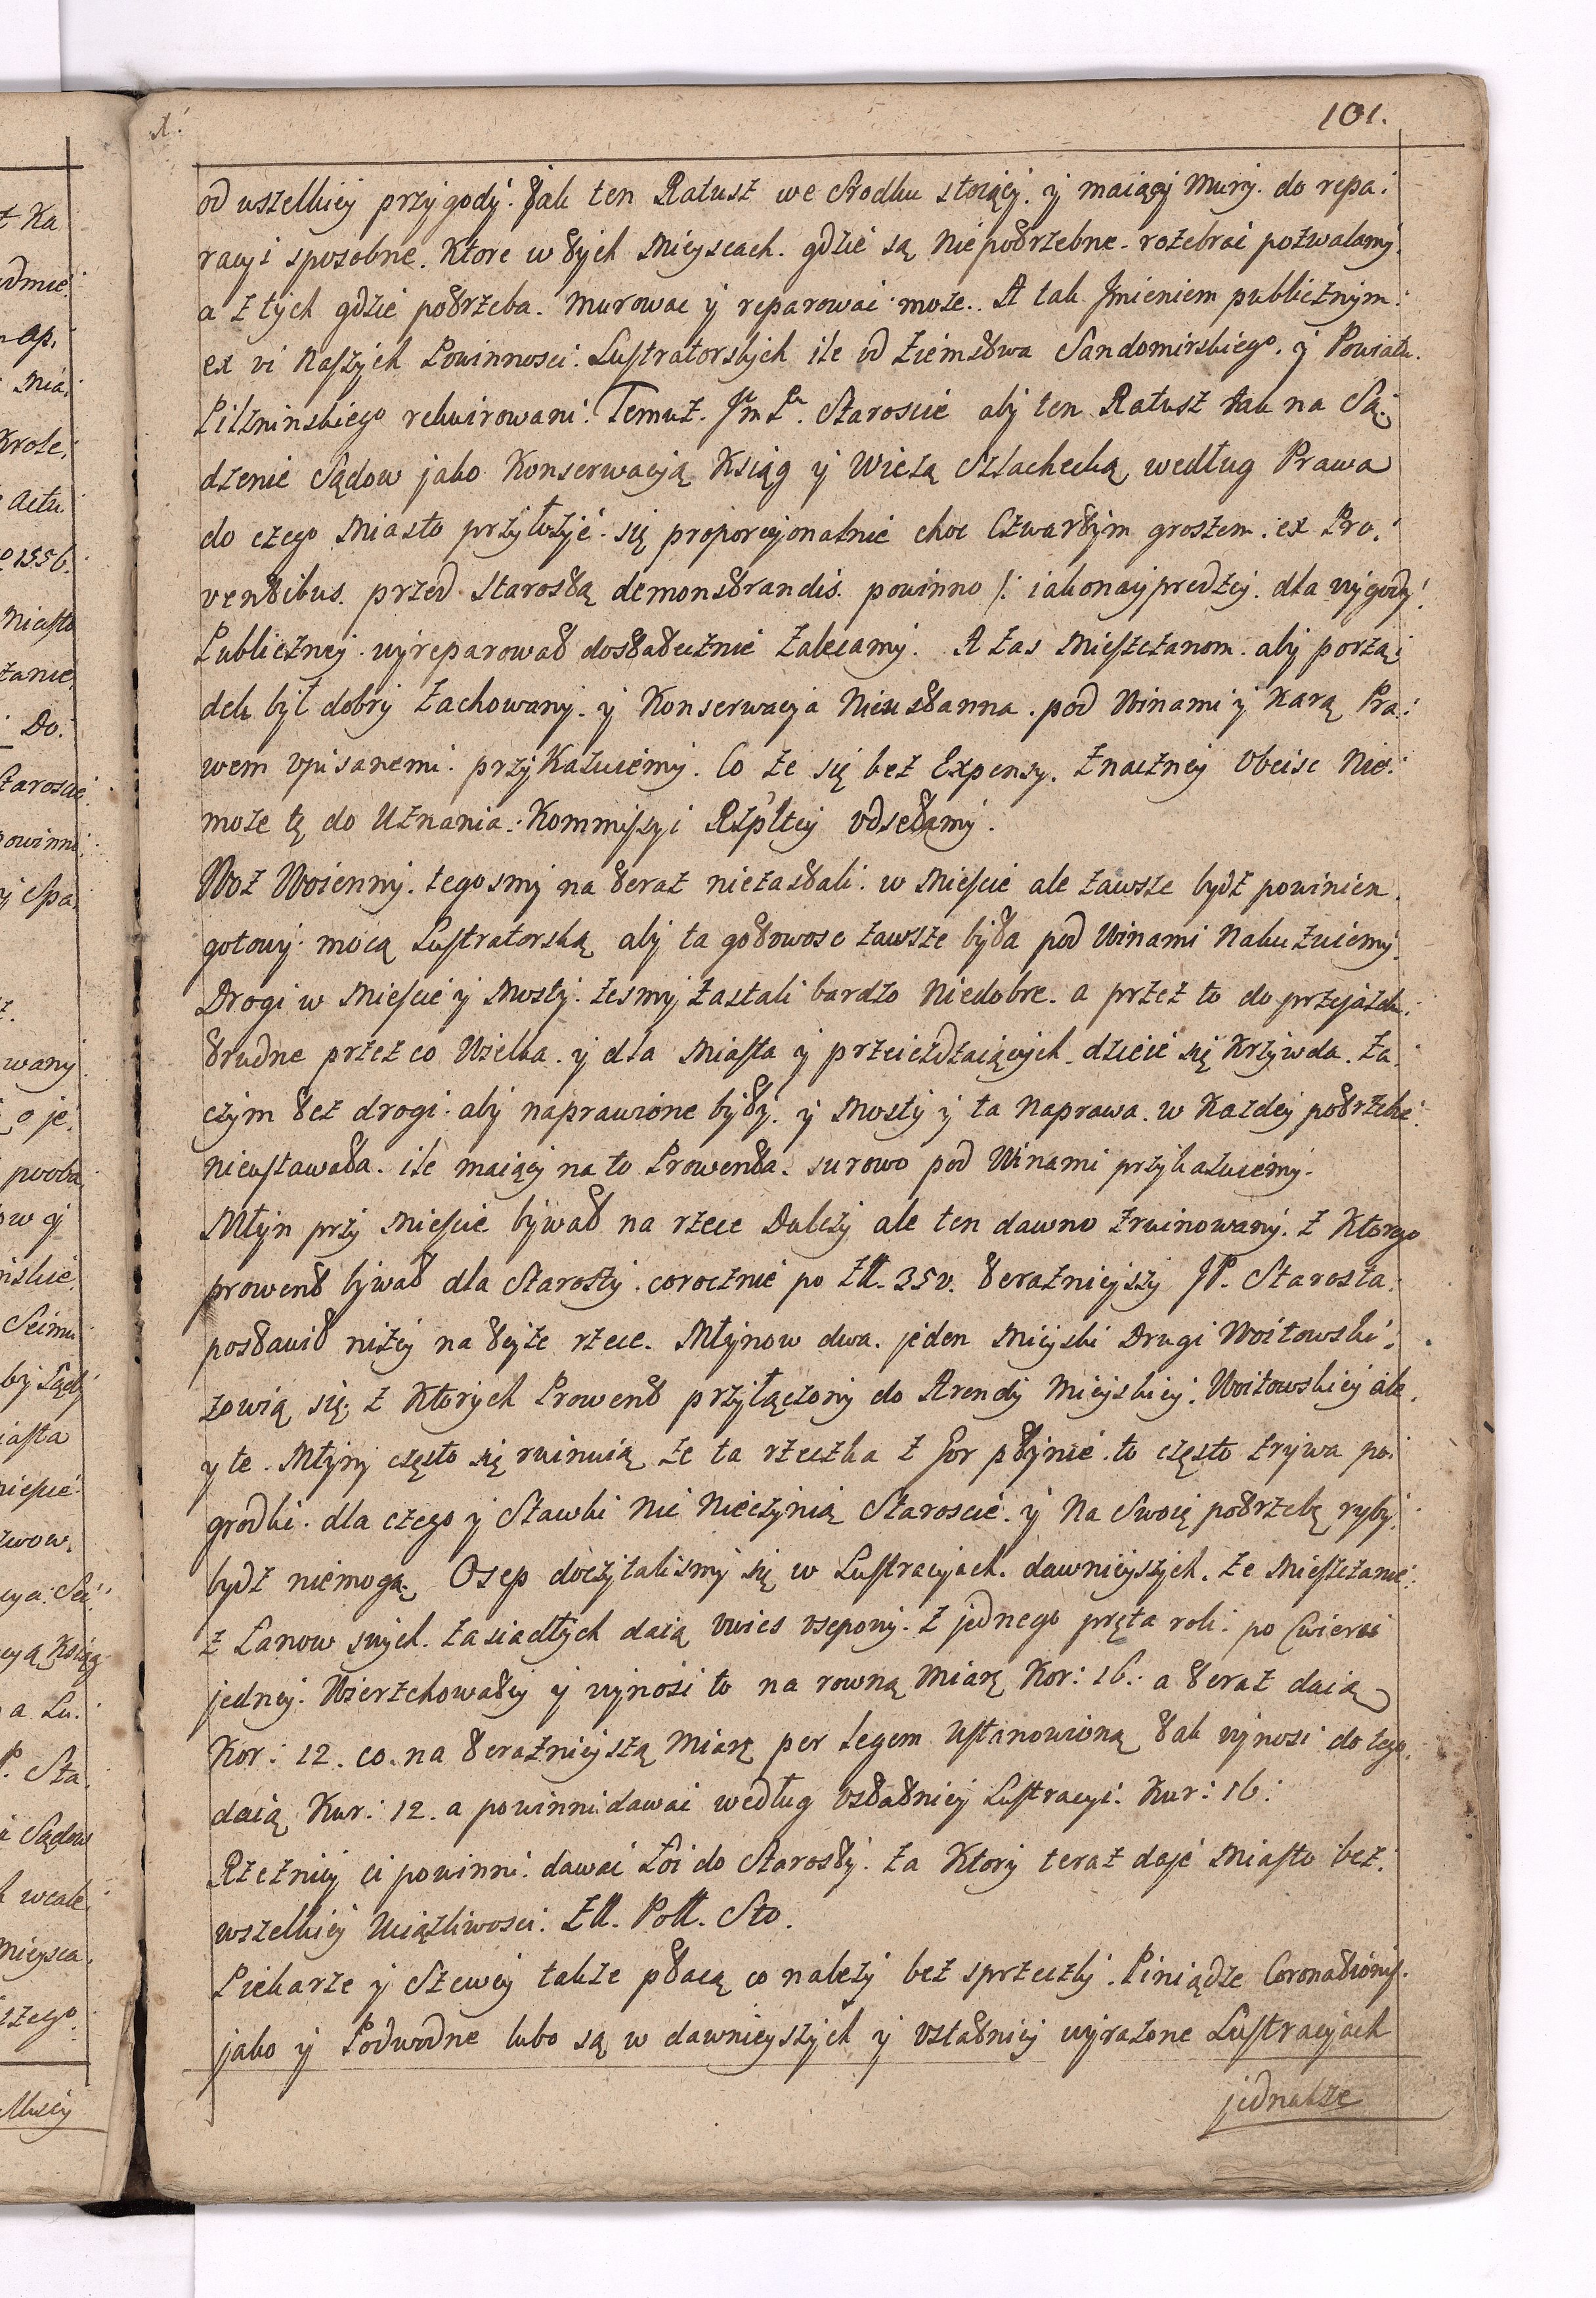 101.
od wszelkiey przygody. Jak ten Ratusz we Srodku stoiący. y maiący Mury. do repa:
racyi sposobne. Ktore w tych Mieyscach. gdzie są Niepotrzebne. rozebrac pozwalamy.
a z tych gdzie potrzeba. Murowac y reparowac moze. A tak Jmieniem publicznym.
ex vi Naszych Powinnosci. Lustratorskych ile od Ziemstwa Sandomirskiego. y Powiatu.
Pilzninskiego rekwirowani. Temuz. Jm Pu. Staroscie aby ten Ratusz tak na Są:
dzenie Sądow jako Konserwacyją Ksiąg y Wiezą Szlachecką według Prawa
do czego Miasto przyłozyć się proporcyonalnie choc Czwartym groszem. ex Pro:
ventibus. przed Starostą demonstrandis. powinno /: iakonayprędzey. dla wygody
Publiczney. wyreparował dostatecznie Zalecamy. A zas Mieszczanom. aby porzą:
dek był dobry Zachowany. y Konserwacya Nieustanna. pod Winami y Karą Pra:
wem opisanemi. przykazuiemy. Co ze się bez Expensy. Znaczney Obeisc Nie:
moze tę do Uznania. Kommissyi Rzpltey odsełamy.
Woz Woienny. tegosmy na teraz niezastali. w Miescie ale zawsze bydz powinien.
gotowy. mocą Lustratorską aby ta gotowosc zawsze była pod Winami Nakazuiemy.
Drogi w Miescie y Mosty. zesmy Zastali bardzo Niedobre. a przez to do przejazdu.
trudne przez co Wielka. y dla Miasta y przeiezdzaiących. dzieie się Krzywda. Za:
czym tez drogi. aby naprawione były. y Mosty y ta Naprawa. w Kazdey potrzebie
nieustawała. ile maiący na to Prowenta. surowo pod Winami przykazuiemy.
Młyn przy Miescie bywał na rzece Dulczy ale ten dawno zruinowany. z Ktorego
prowent bywał dla Starosty. corocznie po Zll. 350. teraznieyszy JP. Starosta.
postawił nizey na teyze rzece. Młynow dwa. jeden Mieyski Drugi Woitowski.
zowią się z Ktorych Prowent przyłączony do Arendy Mieyskiey. Woitowskiey ale.
y te Młyny często się ruinuią ze ta rzeczka z Gor płynie. to często zrywa po:
grodki. dla czego y Stawki nic Nieczynią Staroscie. y Na Swoię potrzebę ryby.
bydz niemogą. Osep doczytalismy się w Lustracyach. dawnieyszych. ze Mieszczanie
z Łanow swych. zasiadłych daią owies osepony. z jednego pręta roli. po Cwierci
jedney. Wierzchowatey y wynosi to na rowną Miarę Kor: 16: a teraz daią
Kor: 12. co. na teraznieyszą Miarę per Legem Ustanowioną tak wynosi do tego.
daią Kor: 12. a powinni dawac według ostatniey Lustracyi. Kor: 16:
Rzeznicy ci powinni. dawac Łoi do Starosty. za Ktory teraz daje Miasto bez:
wszelkiey Uciązliwosci. Zll. Poll. Sto.
Piekarze y Szewcy takze płacą co nalezy bez sprzeczki. Piniądze Coronationis.
jako y Podwodne lubo są w dawnieyszych y ostatniey wyrazone Lustracyach
jednakze